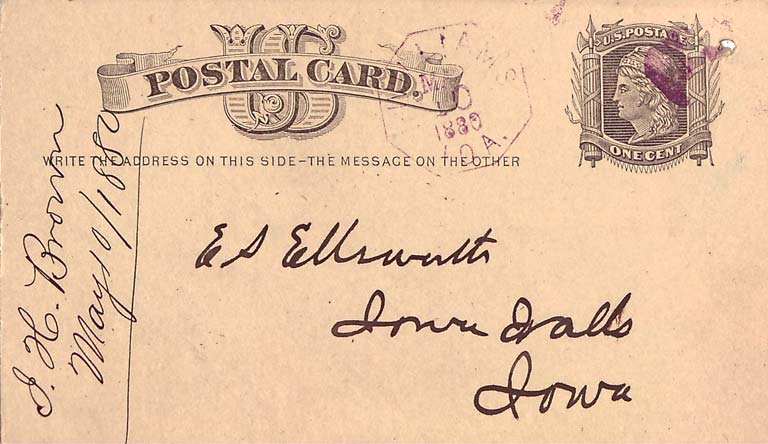 POSTAL CARD.
U.S. POSTAGE
ONE CENT
WILLIAMS
10
1880
IOA.
WRITE THE ADDRESS ON THIS SIDE–THE MESSAGE ON THE OTHER
E S Ellsworth
Iowa Falls
Iowa
J. H. Brown
May 10/1880